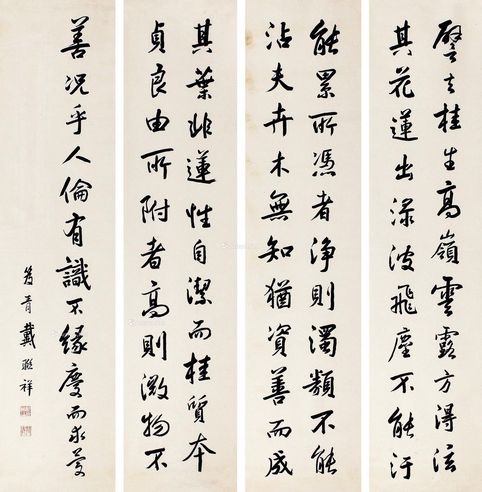 譬之桂生高嶺雲露方得泫
其花蓮出淥波飛塵不能汙
能累所憑者淨則濁類不能
沾夫卉木無知猶資善而成
其葉非蓮性自潔而桂質本
貞良由所附者高則微物不
善況乎人倫有識不緣慶而求慶
青戴聯祥